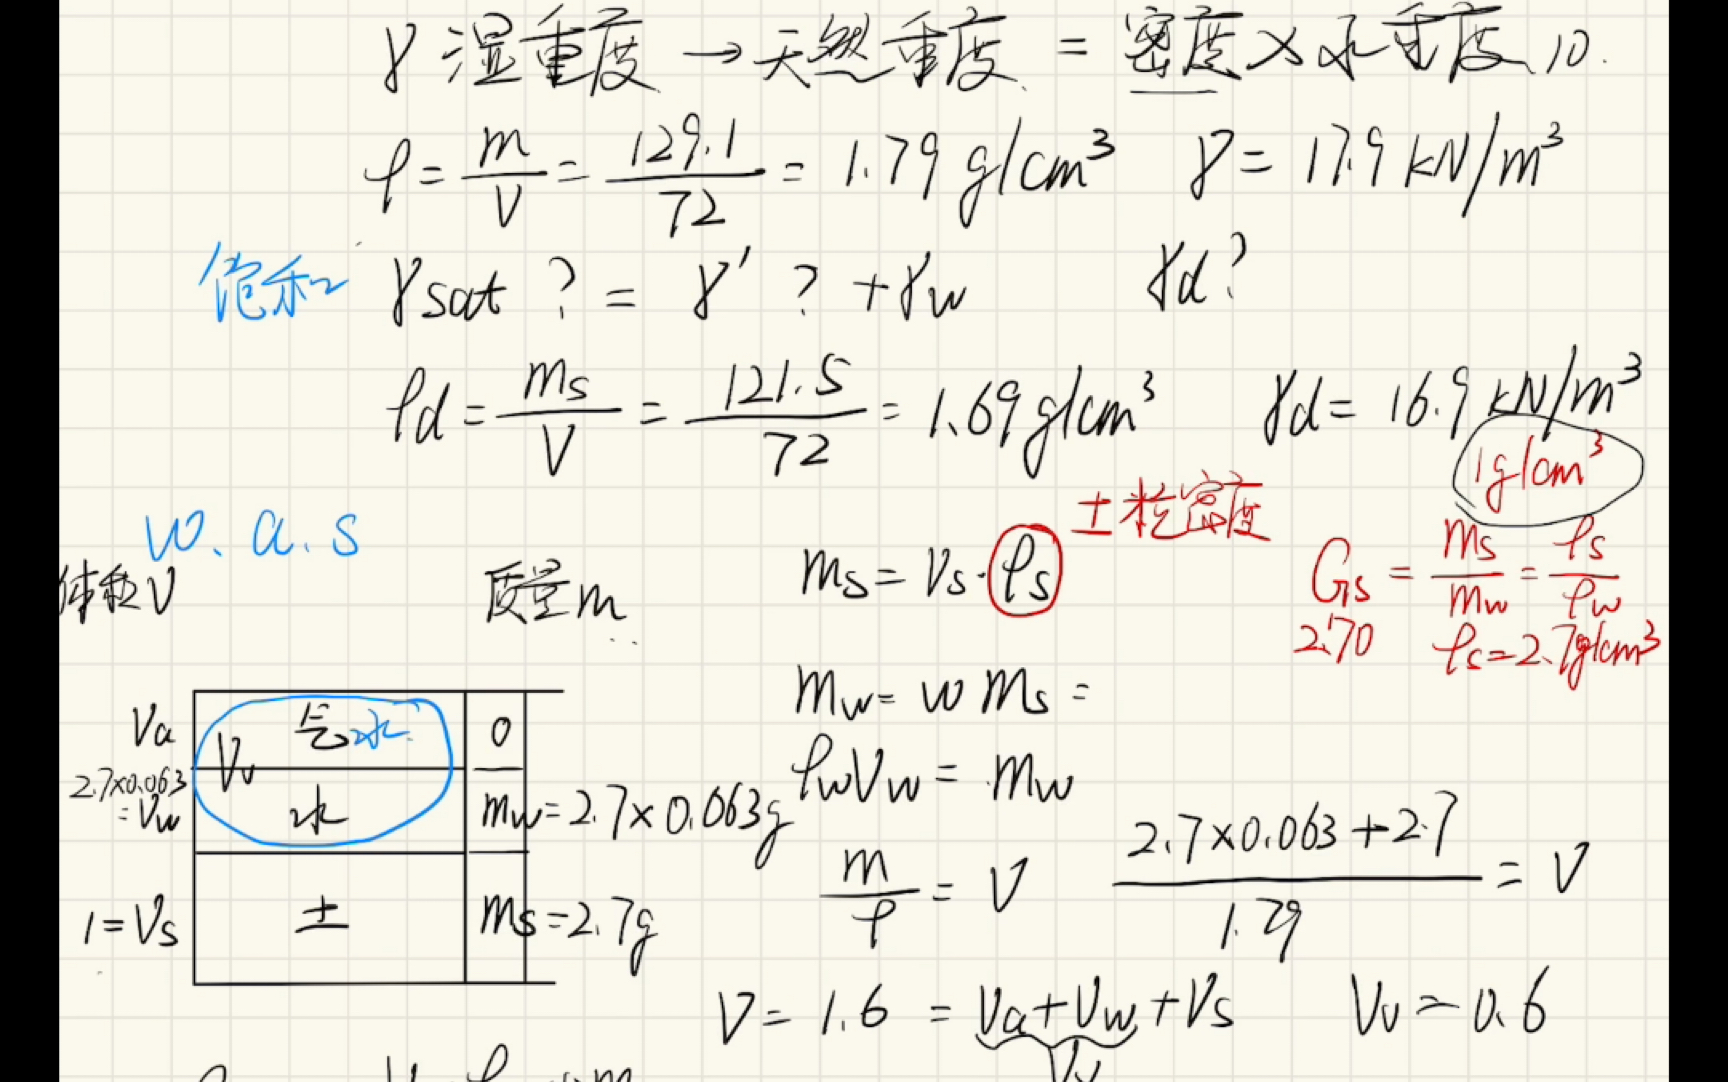 γ 湿重度 → 天然重度 = 密度 × 水重度 10.
ρ = m/V = 129.1/72 = 1.79 g/cm³ γ = 17.9 kN/m³
饱和 γsat ? = γ' ? + γw γd?
ρd = ms/V = 121.5/72 = 1.69 g/cm³ γd = 16.9 kN/m³
1g/cm³
土粒密度
w. a. s
体积V 质量m ms = Vs · ρs Gs = ms/mw = ρs/ρw
2.70 ρs=2.7g/cm³
mw = w ms =
Va Vv 气 水 0
ρwVw = mw
2.7×0.063
=Vw 水 mw=2.7×0.063g
m/ρ = V (2.7×0.063+2.7)/1.79 = V
1=Vs 土 ms=2.7g
V = 1.6 = Va+Vw+Vs Vv = 0.6
Vv